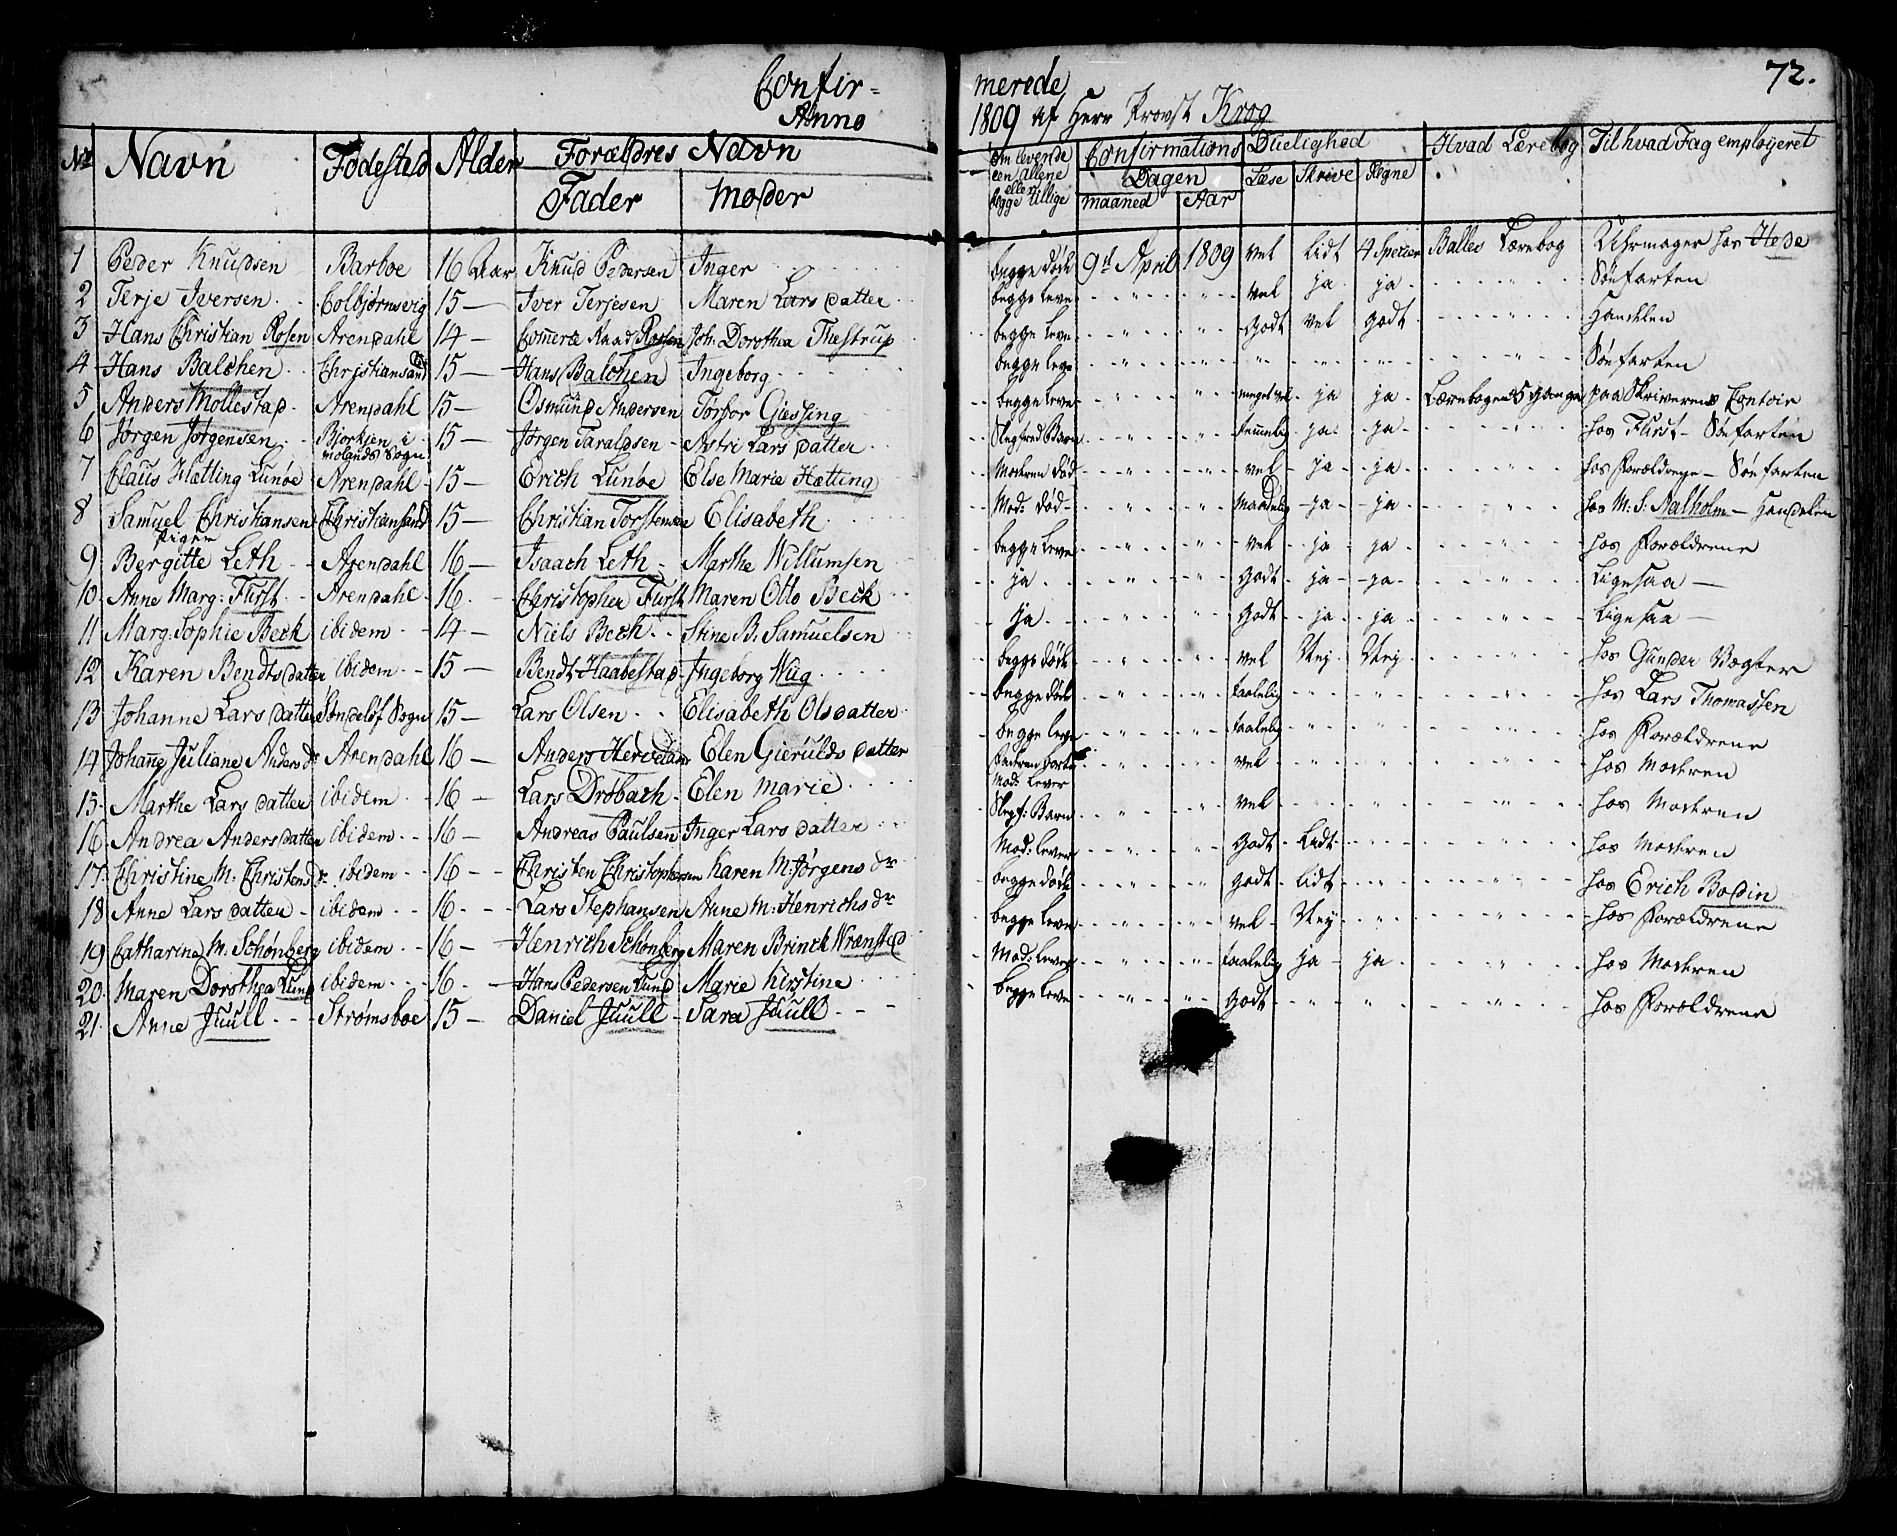 Confir- merede 72.
Anno 1809 af Herr Provst Krog
No Navn Födestad Alder Forældres Navn Om levende een Allene eller begge tillige Confirmations Dagen Duelighed Hvad Lærebog Til hvad Fag employeret
Fader Moder maaned Aar Læse Skrive Regne
1 Peder Knudsen Barboe 16 Aar Knud Pedersen Inger begge døde 9d April 1809 vel lidt 4 Specier Balles Lærebog Uhrmager hos Hede
2 Terje Iversen Colbjørnsvig 15 — Iver Terjesen Maren Lars datter begge leve " " vel ja ja " Söefarten
3 Hans Christian Rosen Arendahl 14 — Rosen Joh. Dorothea Thestrup begge leve " " Godt vel godt " Handelen
4 Hans Balchen Christiansand 15 — Hans Balchen Ingeborg begge leve " " " " " " Söefarten
5 Anders Mollestad Arendahl 15 — Osmund Andersen Torbor Giessing begge leve " " meget vel ja ja Lærebogen 5 gange paa Skriverens Contoir
6 Jørgen Jørgensen Bjorkjen i molands Sogn 15 — Jørgen Taraldsen Astri Lars datter Slegfred Barn " " temmelig ja ja " hos Fürst — Söefarten
7 Claus Hætting Lunøe Arendahl 15 — Erich Lunøe Else Marie Hætting Moderen død " " vel ja ja " hos Forældrene — Söefarten
8 Samuel Christiansen Christiansand 15 — Christian Torstensen Elisabeth Mod: død " " Maadelig ja ja " hos M. S. Aalholm — Handelen
Piger
9 Bergitte Leth Arendahl 16 — Isaach Leth Marthe Willumsen begge leve " " vel ja ja " hos Forældrene
10 Anne Marg: Fürst Arendahl 16 Christopher Fürst Maren Otto Beck ja " " Godt ja ja " Ligesaa —
11 Marg: Sophie Beck ibidem 14 — Niels Beck Stine B. Samuelsen ja " " Godt ja ja " Ligesaa —
12 Karen Bendts datter ibidem 15 — Bendt Haabestad Ingeborg Wiig begge døde " " vel Nej Nej " hos Gunder Vægter
13 Johanne Lars datter Söndelöf Sogn 15 — Lars Olsen Elisabeth Olsdatter begge døde " " taalelig " " hos Lars Thomassen
14 Johanne Juliane Anders dr Arendahl 16 — Anders Elen Gierulds datter begge leve " " taalelig " " hos Forældrene
15 Marthe Lars datter ibidem 16 — Lars Dröbach Elen Marie Faderen borte Mod: lever " " vel " " hos Moderen
16 Andrea Anders datter ibidem 16 — Andreas Paulsen Inger Lars datter Slegf: Barn " " vel " " " hos Moderen
17 Christine M. Christens dr ibidem 16 — Christen Christophersen Karen M: Jørgens dr Mod: lever " " Godt Lidt " " hos Moderen
18 Anne Lars datter ibidem 16 — Lars Stephansen Anne M: Henrichs dr begge døde " " godt lidt " " hos Erich Boldin
19 Catharina M. Schönberg ibidem 16 — Henrich Schönberg Maren Brinch Wrænsted begge leve " " vel Nej " " hos Forældrene
20 Maren Dorothea Lund ibidem 16 — Hans Pedersen Lund Marie Kirstine Mod: lever " " taalelig ja ja " hos Moderen
21 Anne Juull Strømsboe 15 — Daniel Juull Sara Juull begge leve " " Godt " " " hos Forældrene